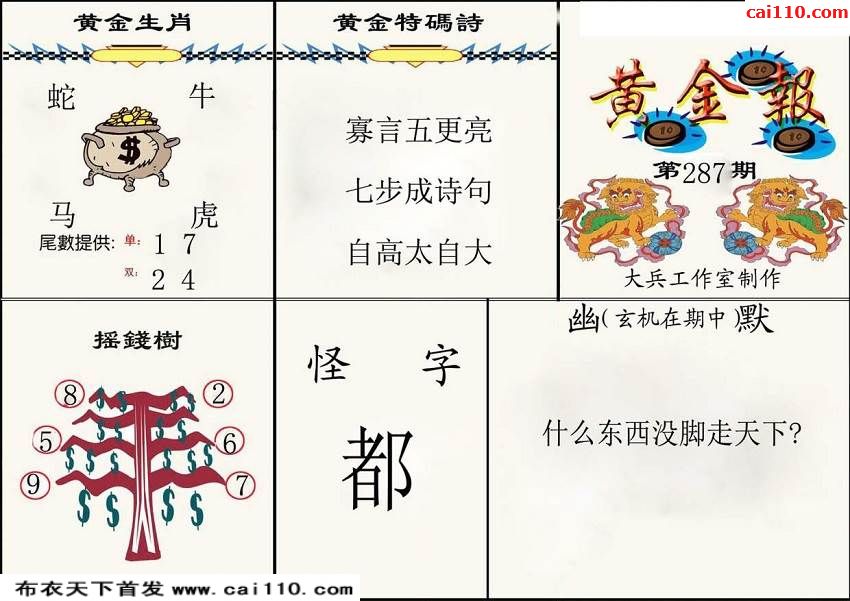 cai110.com
黄金生肖
蛇 牛
$
马 虎
尾數提供: 单: 1 7
双: 2 4
黄金特碼詩
寡言五更亮
七步成诗句
自高太自大
黄金報
第287期
大兵工作室制作
摇錢樹
8 2
5 6
9 7
怪 字
都
幽(玄机在期中)默
什么东西没脚走天下?
布衣天下首发 www.cai110.com